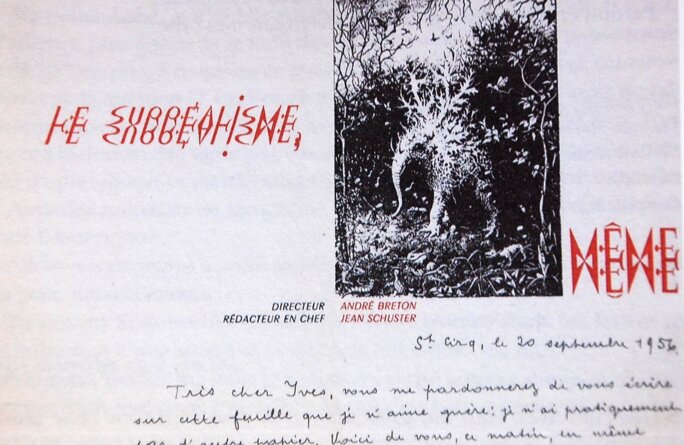 LE SURRÉALISME,
MÊME
DIRECTEUR ANDRÉ BRETON
RÉDACTEUR EN CHEF JEAN SCHUSTER
St Cirq, le 20 septembre 1956
Très cher Yves, vous me pardonnerez de vous écrire
sur cette feuille que je n'aime guère : je n'ai pratiquement
pas d'autre papier. Voici de vous, ce matin, en même